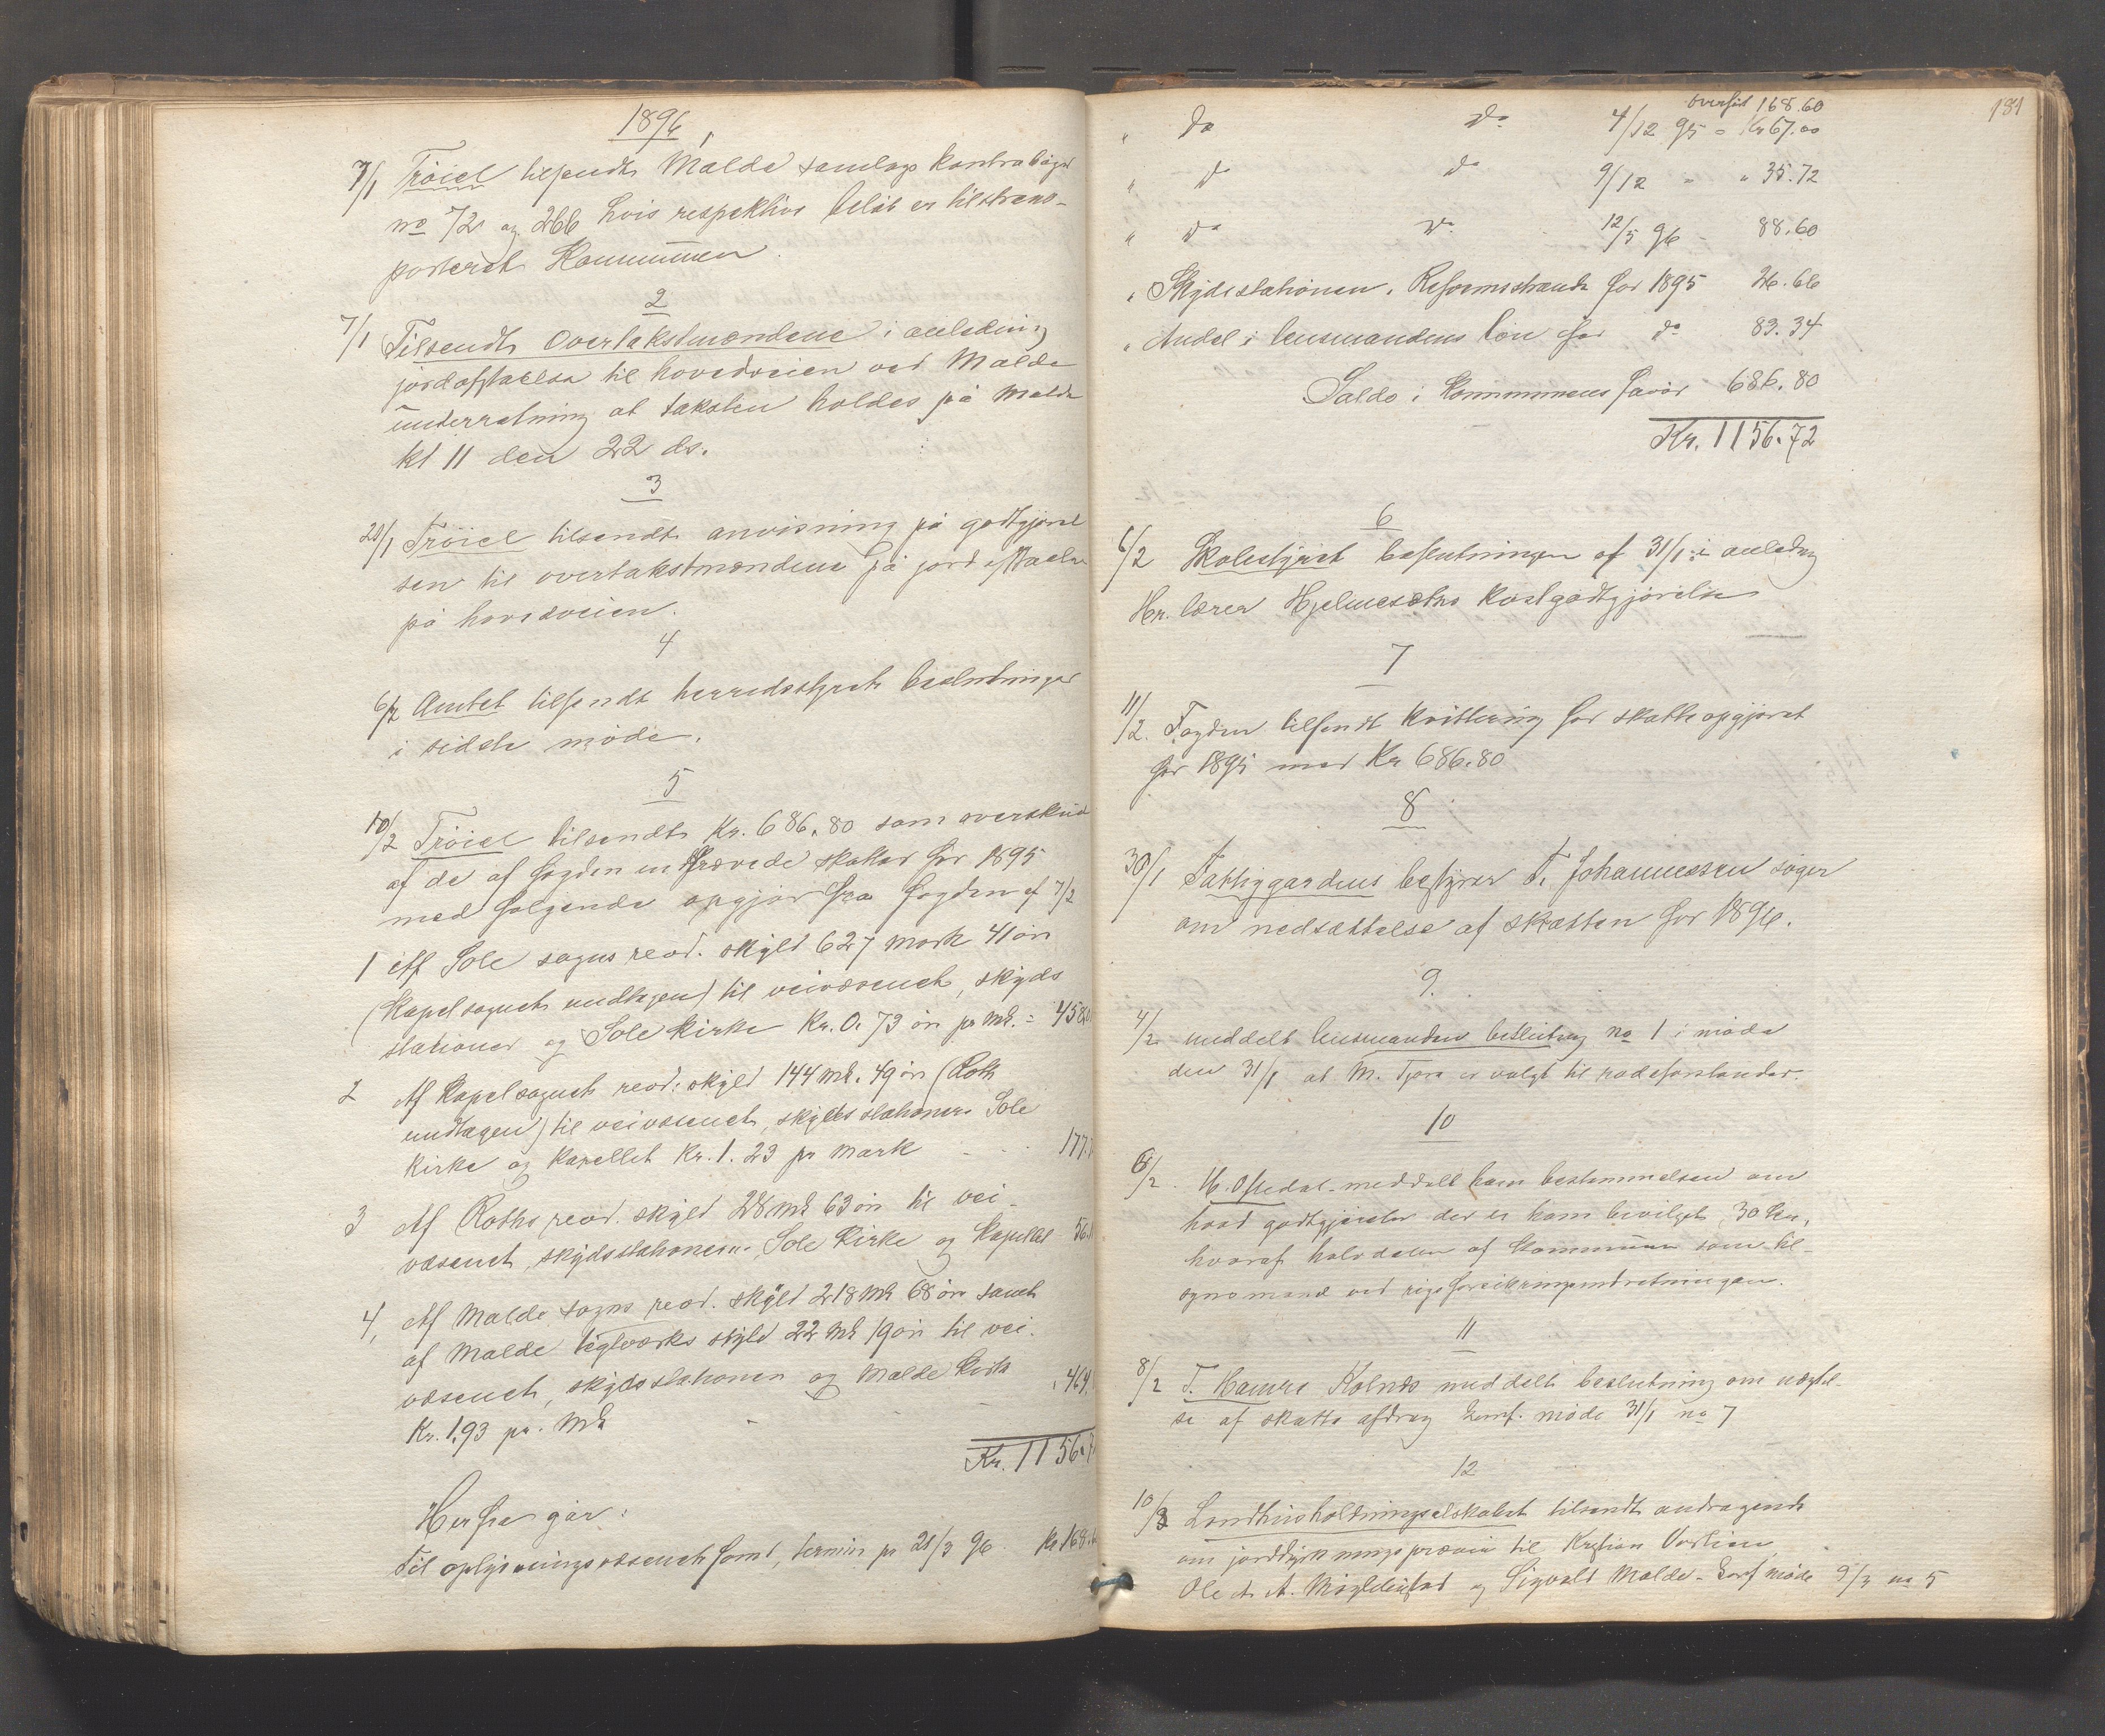 1896
1
7/1 Tröiel tilsendt Malde samlags kontrabøger
no 72 og 266 hvis respektive beløb er tilstrans-
porteret Kommunen.
2
7/1 Tilsendt Overtakstmændene i anledning
jordafstaaelse til hovedveien ved Malde
underretning at taksten holdes på Malde
kl 11 den 22 ds.
3
28/1 Tröiel tilsendt anvisning på godtgjørel
sen til overtakstmændene på jordafstaaelse
på hovedveien.
4
6/2 Amtet tilsendt herredsstyrets beslutninger
i sidste møde.
5
10/2 Tröiel tilsendt Kr. 686.80 som overskud
af de af fogden indkrævede skatter for 1895
med følgende opgjør fra fogden af 7/2
1 Af Sole sogns revd. skyld 627 mark 41 ør
(Kapelsognet undtagen) til veivæsenet, skyds
stationer og Sole kirke Kr. 0.73 ør pr mk. = 458.0
2 Af Kapelsognets revd. skyld 144 mk. 49 ør (Roth
undtagen) til veivæsenet, skydsstationer Sole
kirke og kapellet Kr. 1.23 pr mark - - 177.
3 Af Roths revd. skyld 28 mk 63 ør til vei-
væsenet, skydsstationerne, Sole Kirke og Kapellet 56.
4, Af Malde sogns revd. skyld 218 mk 68 ør samt
af Malde teglværks skyld 22 mk 19 ør til vei-
væsenet, skydsstationen og Malde kirke
Kr. 1.93 pr. mk - - " 464.
Kr. 1156.7
Herfra går:
Til oplysningsvæsenets fond, termin pr 21/3 96. Kr 168.6
181
overført 168.60
" do do 4/12 95 = Kr 67.00
" do do 9/12 - " 35.72
" do do 12/5 96 - 88.60
" Skydsstationen, Reformstrand for 1895 26.66
" Andel i lensmandens løn for do 83.34
Saldo i Kommunens favør 686.80
Kr. 1156.72
6
6/2 Skolestyret beslutningen af 31/1 i anledning
Hr. lærer Hjelmesæths kostgodtgjørelse
7
11/2. Fogden tilsendt kvittering for skatteopgjøret
for 1895 med Kr 686.80
8
30/1 Fattiggardens bestyrer T. Johannesen søger
om nedsættelse af skatten for 1896.
9.
4/2 meddelt lensmanden beslutning no 1 i møde
den 31/1 at M. Tjora er valgt til rodeforstander.
10
6/2. M. Oftedal meddelt ham bestemmelsen om
hvad godtgjørelse der er ham bevilget, 30 kr,
hvoraf halvdelen af Kommunen som til-
synsmand ved rigsforsikringsindretningen.
11
8/2 T. Hamre Kolnes meddelt beslutning om nægtel-
se af skatteafdrag konf. møde 31/1 no 7
12
10/3 Landhusholdningselskabet tilsendt andragende
om jorddyrkningspræmie til Kristian
Ole A. og Sigvald Malde - konf. møde 9/3 no 5